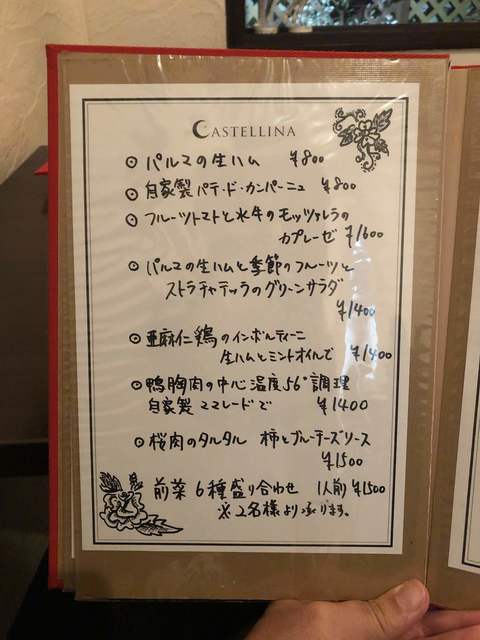 CASTELLINA
⊙ パルマの生ハム ¥800
⊙ 自家製パテ・ド・カンパーニュ ¥800
⊙ フルーツトマトと水牛のモッツァレラの
カプレーゼ ¥1600
⊙ パルマの生ハムと季節のフルーツと
ストラチャテッラのグリーンサラダ
¥1400
⊙ 亜麻仁鶏のインボルティーニ
生ハムとミントオイルで ¥1400
⊙ 鴨胸肉の中心温度56°調理
自家製ママレードで ¥1400
⊙ 桜肉のタルタル 柿とブルーチーズソース
¥1500
前菜 6種盛り合わせ 1人前 ¥1500
※2名様より承ります。